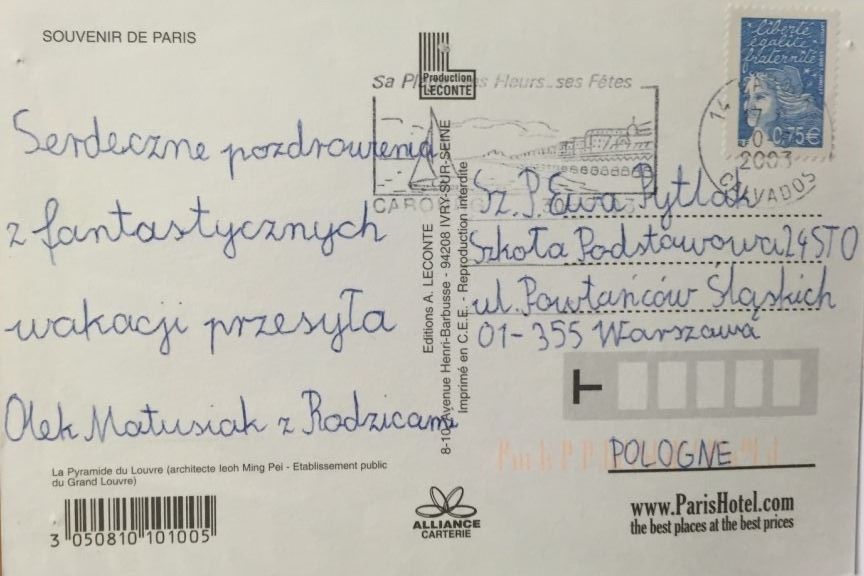 SOUVENIR DE PARIS
Serdeczne pozdrowienia
z fantastycznych
wakacji przesyła
Olek Matusiak z Rodzicami
La Pyramide du Louvre (architecte Ieoh Ming Pei - Etablissement public
du Grand Louvre)
3 050810 101005
Production
LECONTE
Editions A. LECONTE
8-10, Avenue Henri-Barbusse - 94208 IVRY-SUR-SEINE
Imprimé en C.E.E. Reproduction interdite
ALLIANCE
CARTERIE
Sa Fleurs ses Fêtes
liberté
égalité
fraternité
0,75€
14
2003
CALVADOS
Sz. P. Ewa Pytlak
Szkoła Podstawowa 24 STO
ul. Powtańców Śląskich
01-355 Warszawa
POLOGNE
www.ParisHotel.com
the best places at the best prices